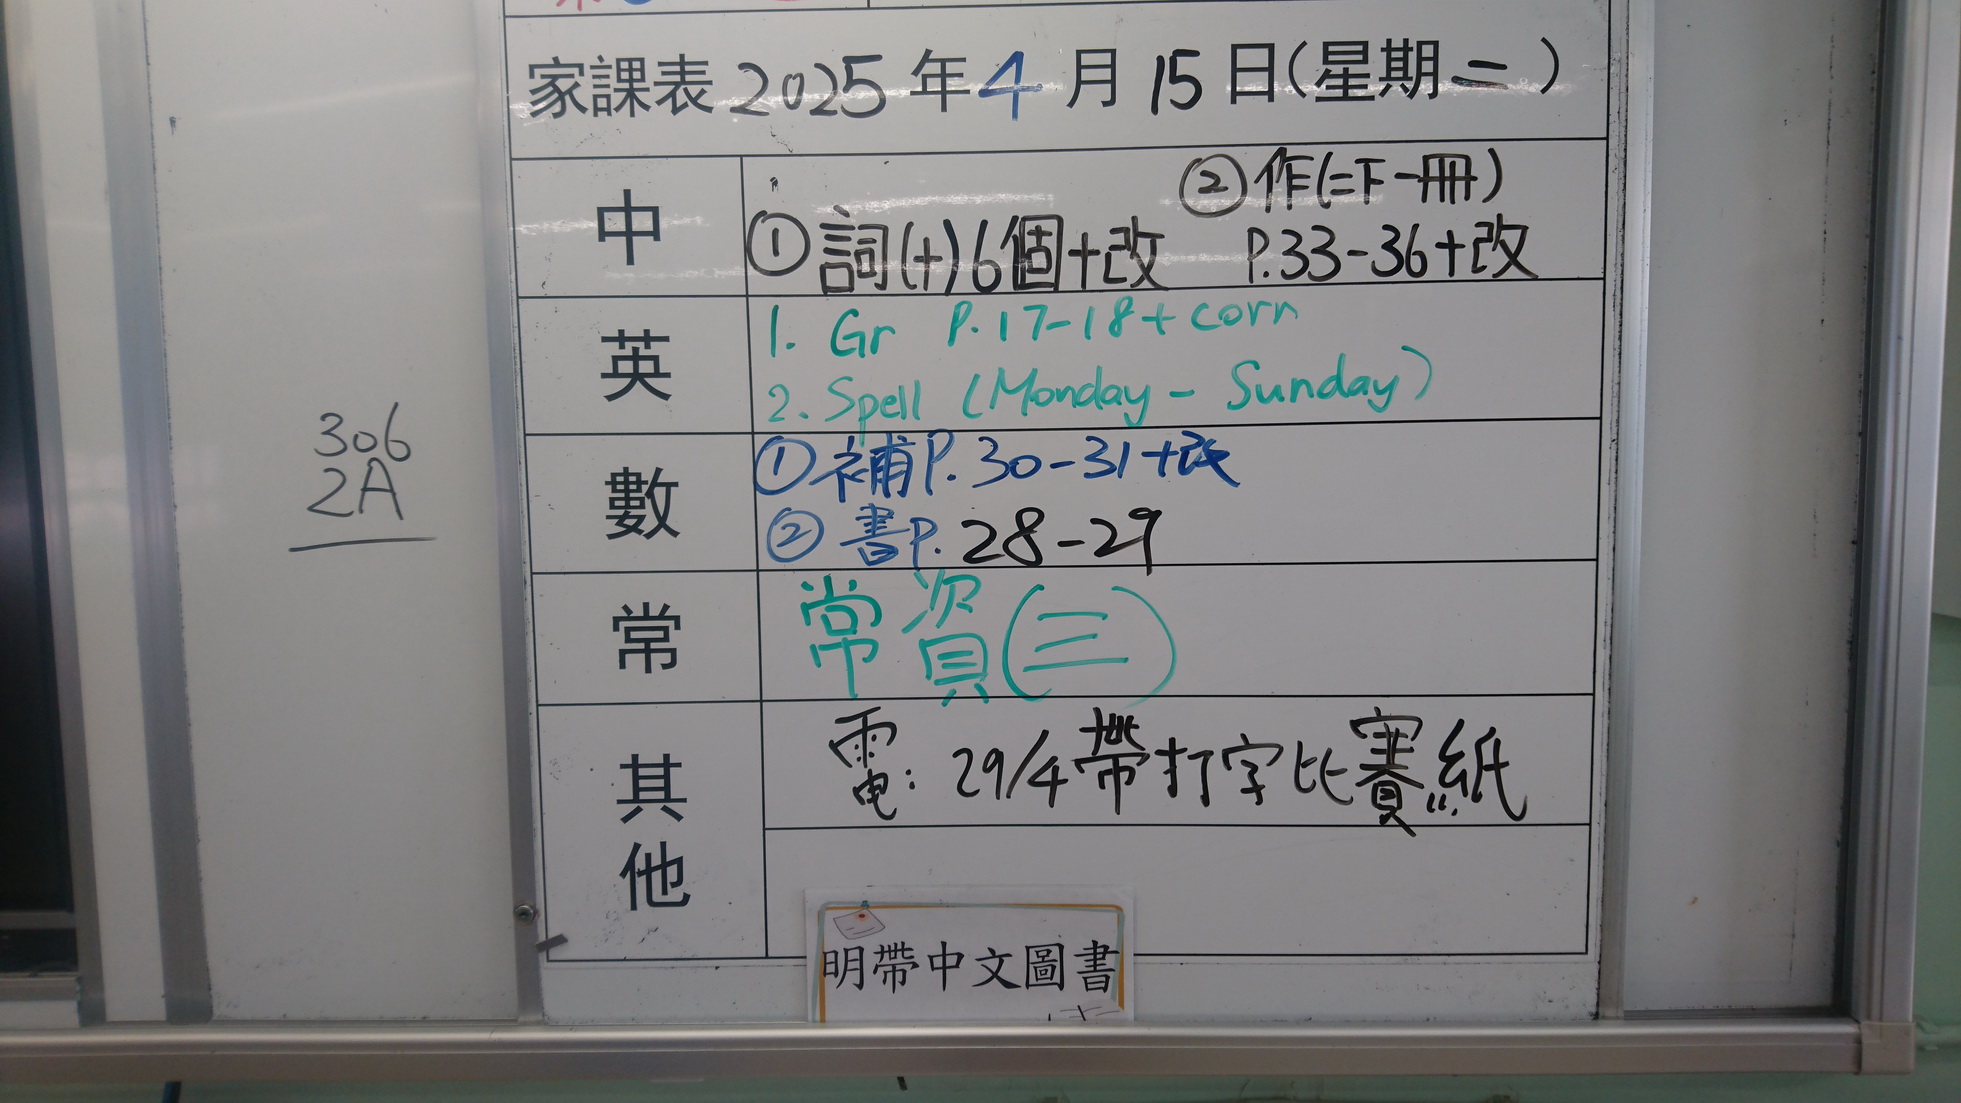 家課表2025年4月15日(星期二)
中
②作(二下一冊)
①詞(十)6個+改 P.33-36+改
英
1. Gr P.17-18+corr
2. Spell (Monday - Sunday)
數
①補P.30-31+改
②書P.28-29
常
常資(三)
其他
電: 29/4帶打字比賽紙
明帶中文圖書
306
2A